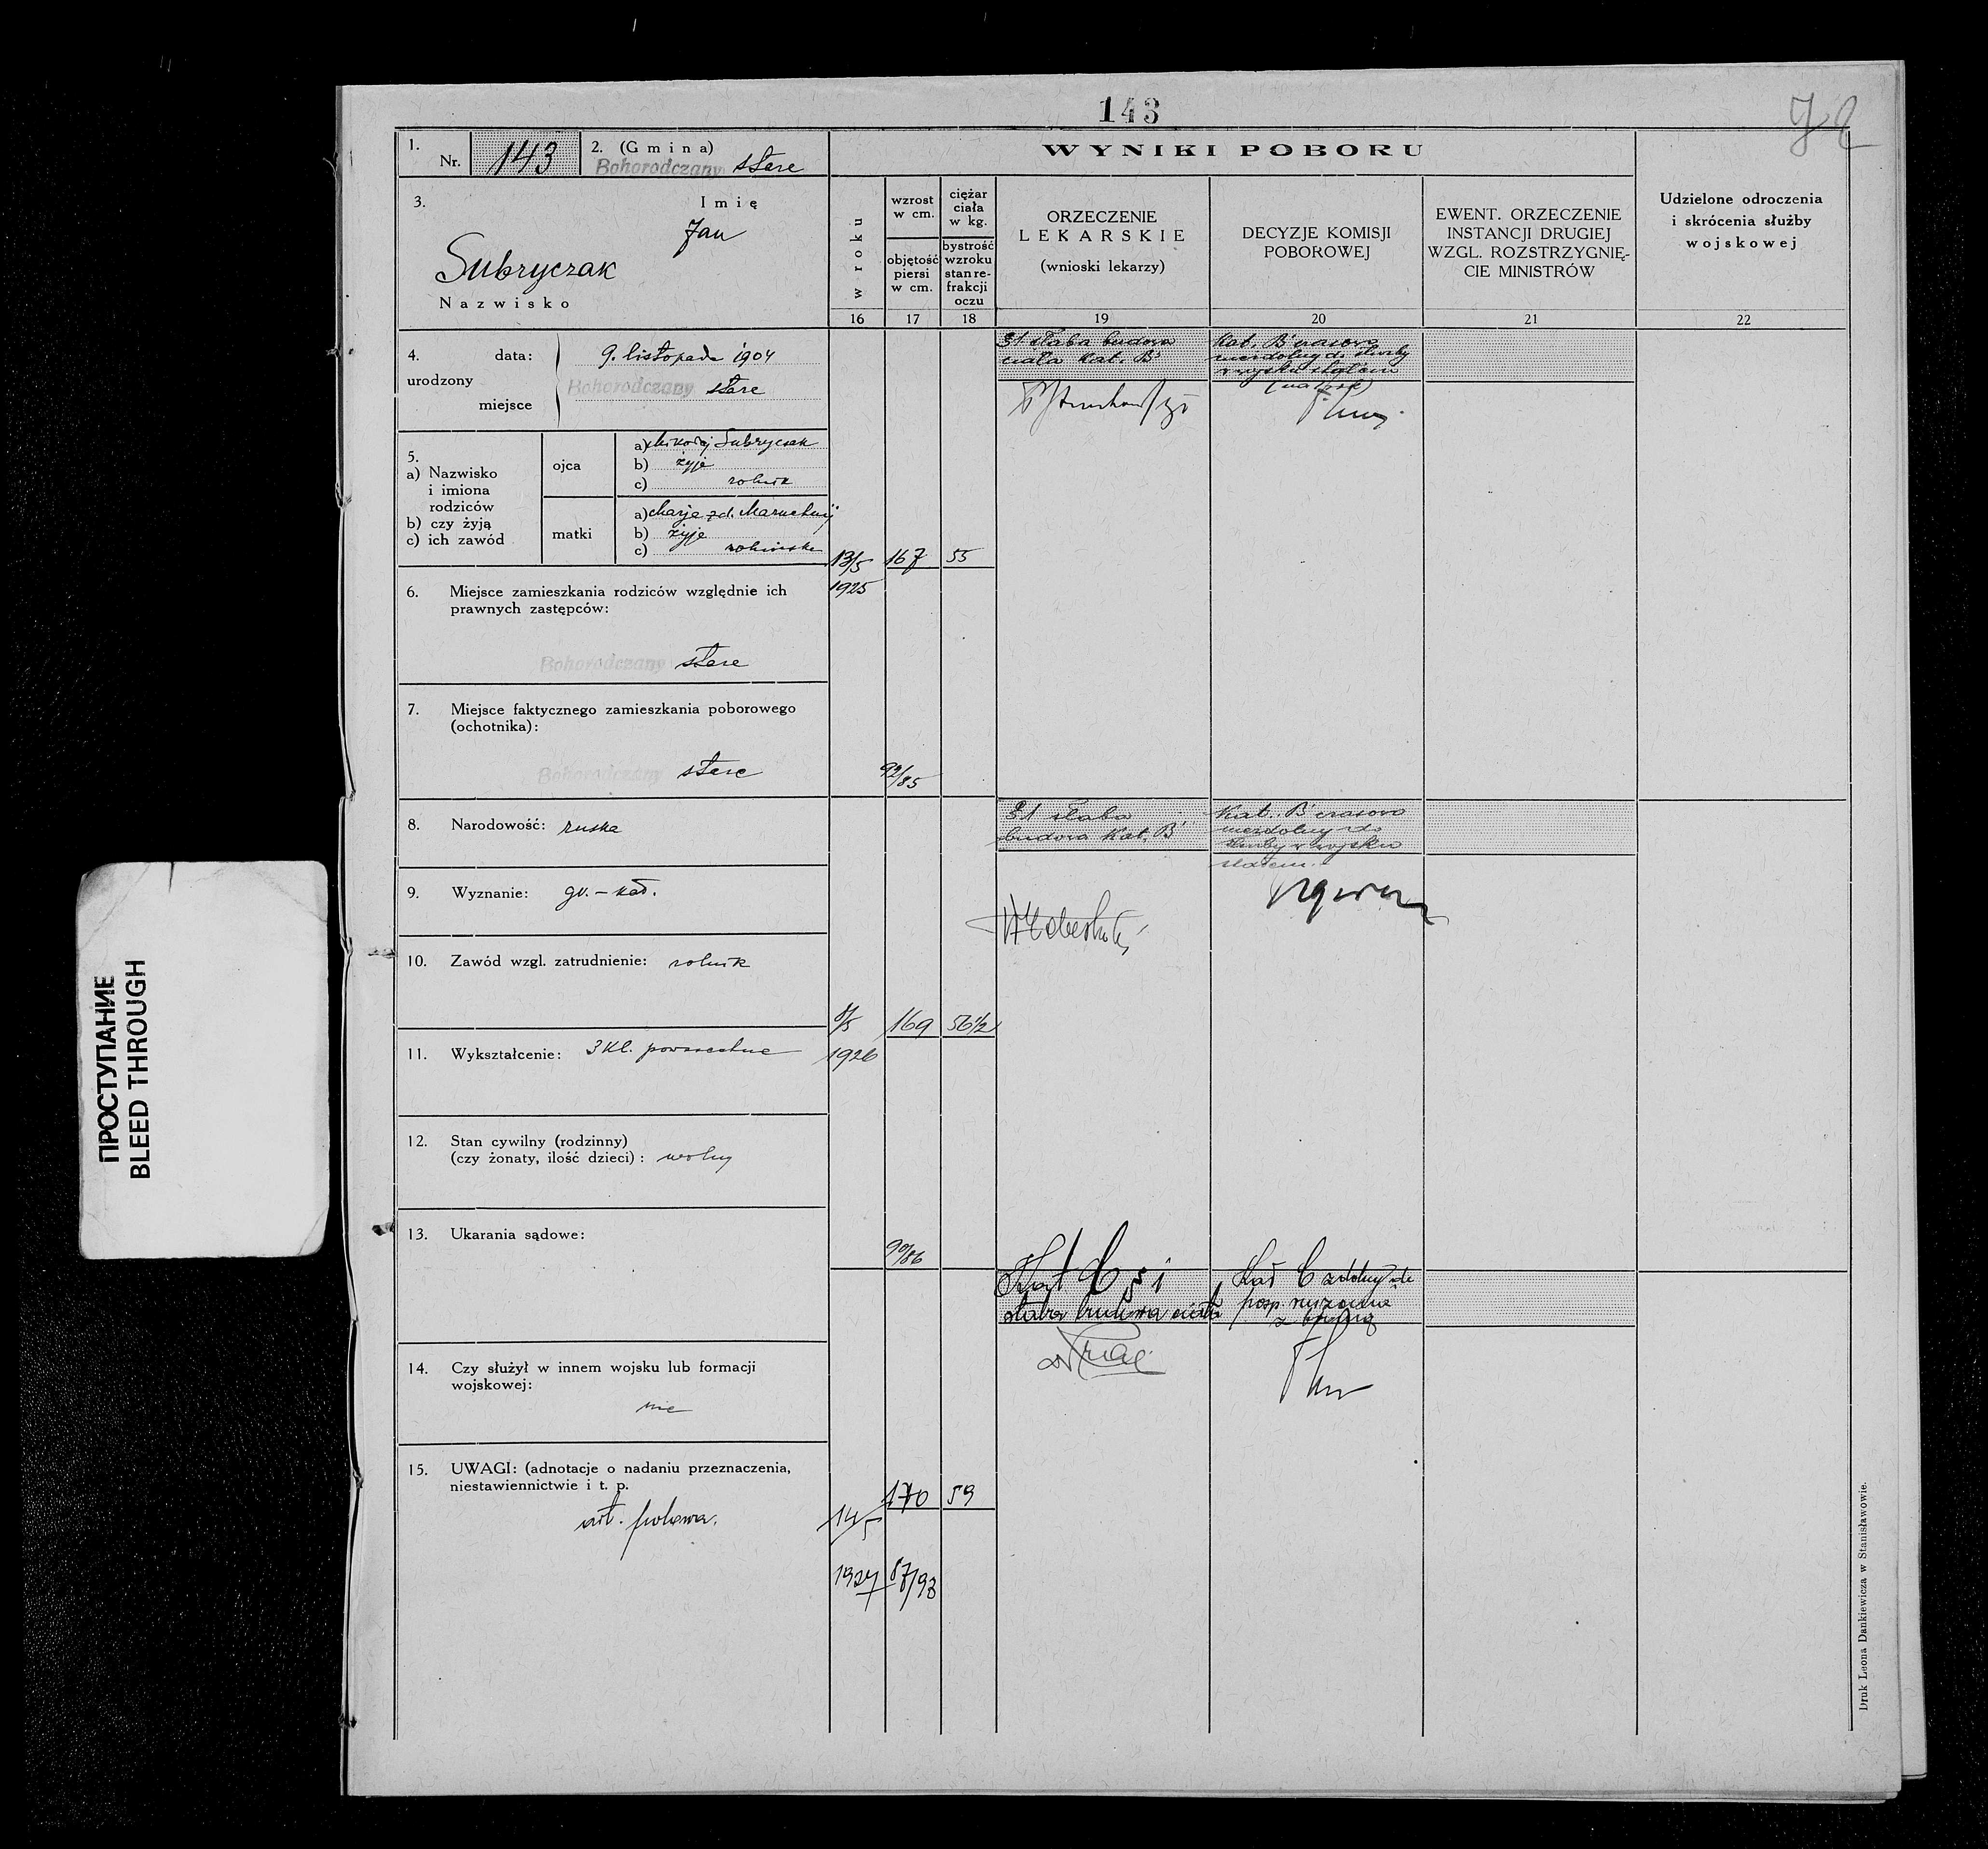 143
1.
Nr. 143
2. (Gmina)
Bohorodczany stare
3.
Imię
Jan
Subryczak
Nazwisko
4.
data: 9. listopada 1904
urodzony
Bohorodczany stare
miejsce
5.
a) Nazwisko
i imiona
rodziców
b) czy żyją
c) ich zawód
ojca
a) Mikołaj Subryczak
b) żyje
c) rolnik
matki
a) Marja zd.
b) żyje
c)
6. Miejsce zamieszkania rodziców względnie ich
prawnych zastępców:
Bohorodczany stare
7. Miejsce faktycznego zamieszkania poborowego
(ochotnika):
Bohorodczany stare
8. Narodowość: ruska
9. Wyznanie: gr.-kat.
10. Zawód wzgl. zatrudnienie: rolnik
11. Wykształcenie: 3 kl. powszechne
12. Stan cywilny (rodzinny)
(czy żonaty, ilość dzieci): wolny
13. Ukarania sądowe:
14. Czy służył w innem wojsku lub formacji
wojskowej:
nie
15. UWAGI: (adnotacje o nadaniu przeznaczenia,
niestawiennictwie i t. p.
art. polowa.
WYNIKI POBORU
w roku
16
wzrost
w cm.
objętość
piersi
w cm.
17
ciężar
ciała
w kg.
bystrość
wzroku
stan re-
frakcji
oczu
18
ORZECZENIE
LEKARSKIE
(wnioski lekarzy)
19
DECYZJE KOMISJI
POBOROWEJ
20
EWENT. ORZECZENIE
INSTANCJI DRUGIEJ
WZGL. ROZSTRZYGNIĘ-
CIE MINISTRÓW
21
Udzielone odroczenia
i skrócenia służby
wojskowej
22
13/5
1925
167
55
92/85
§1 słaba budowa
ciała Kat. B
Kat. B czasowo
niezdolny do służby
w wojsku stałem
8/5
1926
169
56 1/2
90/86
§1 słaba
budowa Kat. B
Kat. B czasowo
niezdolny do
służby w wojsku
stałem.
14/5
1927
170
59
87/93
Kat C § 1
słaba budowa ciała
Kat C zdolny do
posp. ruszenia
z bronią
Druk Leona Dankiewicza w Stanisławowie.
ПРОСТУПАНИЕ
BLEED THROUGH